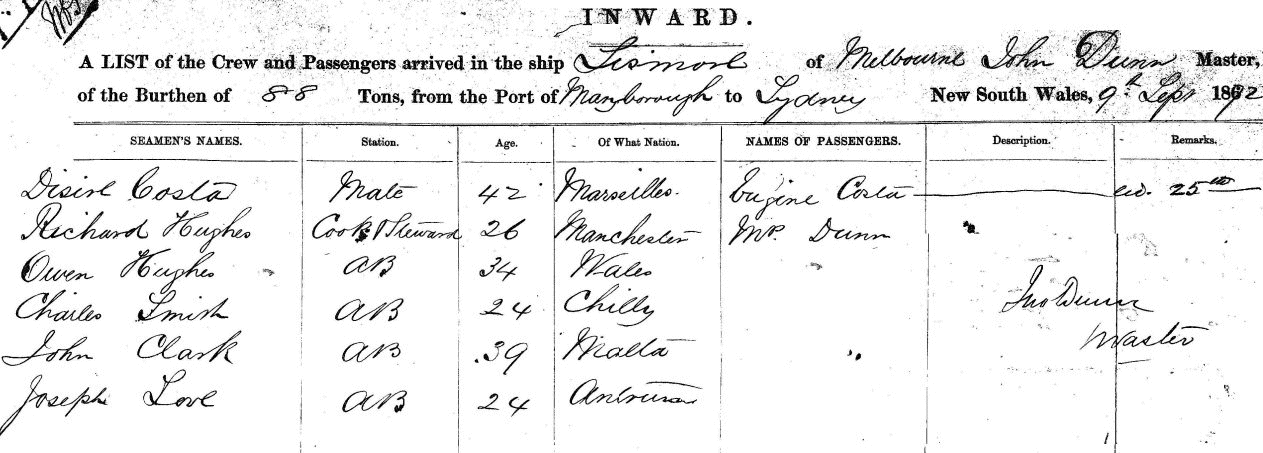 INWARD.
A LIST of the Crew and Passengers arrived in the ship Lismore of Melbourne John Dunn Master,
of the Burthen of 88 Tons, from the Port of Maryborough to Sydney New South Wales, 9th Sept 1872
SEAMEN'S NAMES. Station. Age. Of What Nation. NAMES OF PASSENGERS. Description. Remarks.
Disire Costa Mate 42 Marseilles. Eugine Costa 25th
Richard Hughes Cook & Steward 26 Manchester Mr. Dunn
Owen Hughes AB 34 Wales
Charles Smith AB 24 Chilly
Jno Dunn
John Clark AB 39 Malta
Master
Joseph Love AB 24